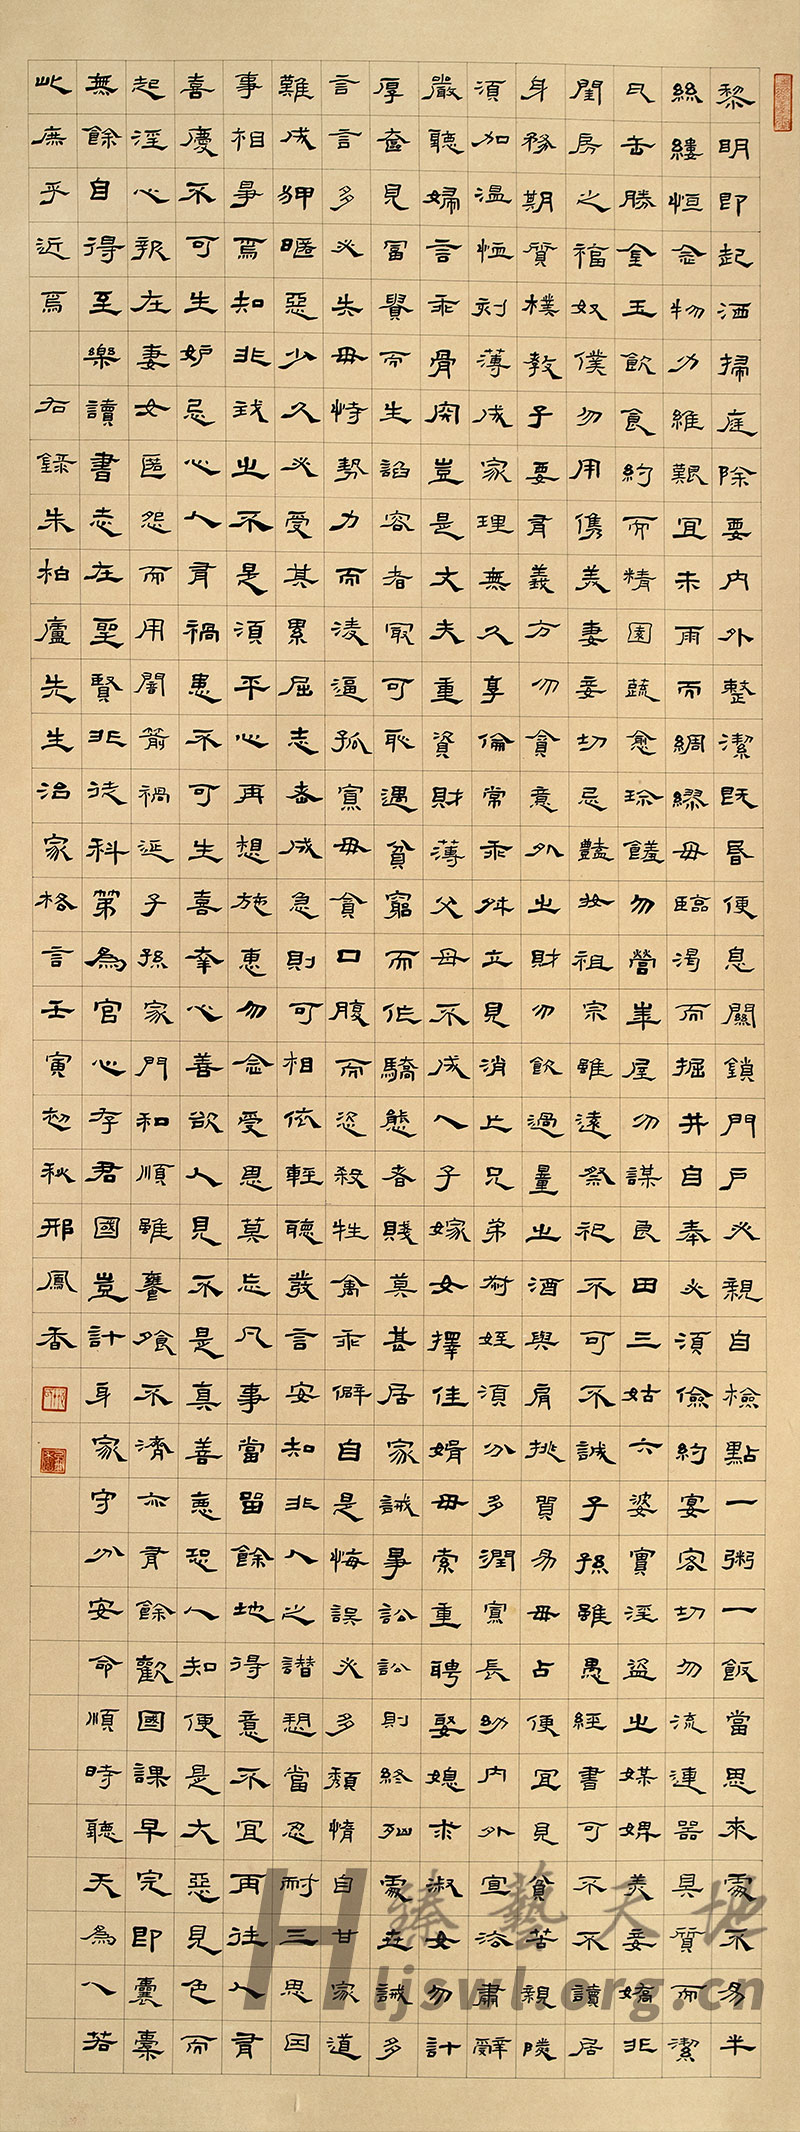 黎明即起洒掃庭除要内外整潔既昏便息關鎖門戶必親自檢點一粥一飯當思來處不易半
絲縷恒念物力維艱宜未雨而綢繆毋臨渴而掘井自奉必須儉約宴客切勿流連器具質而潔
瓦缶勝金玉飲食約而精園蔬愈珍饈勿營華屋勿謀良田三姑六婆實淫盜之媒婢美妾嬌非
閨房之福奴僕勿用儁美妻妾切忌豔妝祖宗雖遠祭祀不可不誠子孫雖愚經書可不不讀居
身務期質樸教子要有義方勿貪意外之財勿飲過量之酒與肩挑貿易毋占便宜見貧苦親隣
須加溫恤刻薄成家理無久享倫常乖舛立見消亡兄弟叔姪須分多潤寡長幼内外宜法肅辭
嚴聽婦言乖骨肉豈是丈夫重資財薄父母不成人子嫁女擇佳婿毋索重聘娶媳求淑女勿計
厚奩見富貴而生諂容者最可恥遇貧窮而作驕態者賤莫甚居家誡爭訟訟則終凶處世誡多
言言多必失毋恃勢力而淩逼孤寡毋貪口腹而恣殺牲禽乖僻自是悔誤必多頹惰自甘家道
難成狎暱惡少久必受其累屈志老成急則可相依輕聽發言安知非人之譖愬當忍耐三思因
事相爭焉知非我之不是須平心再想施惠勿念受恩莫忘凡事當留餘地得意不宜再往人有
喜慶不可生妒忌心人有禍患不可生喜幸心善欲人見不是真善惡恐人知便是大惡見色而
起淫心報在妻女匿怨而用闇箭禍延子孫家門和順雖饔飧不濟亦有餘歡國課早完即囊橐
無餘自得至樂讀書志在聖賢非徒科第爲官心存君國豈計身家守分安命順時聽天爲人若
此庶乎近焉 右錄朱柏廬先生治家格言壬寅初秋邢鳳香
臻藝天地
Hljswl.org.cn